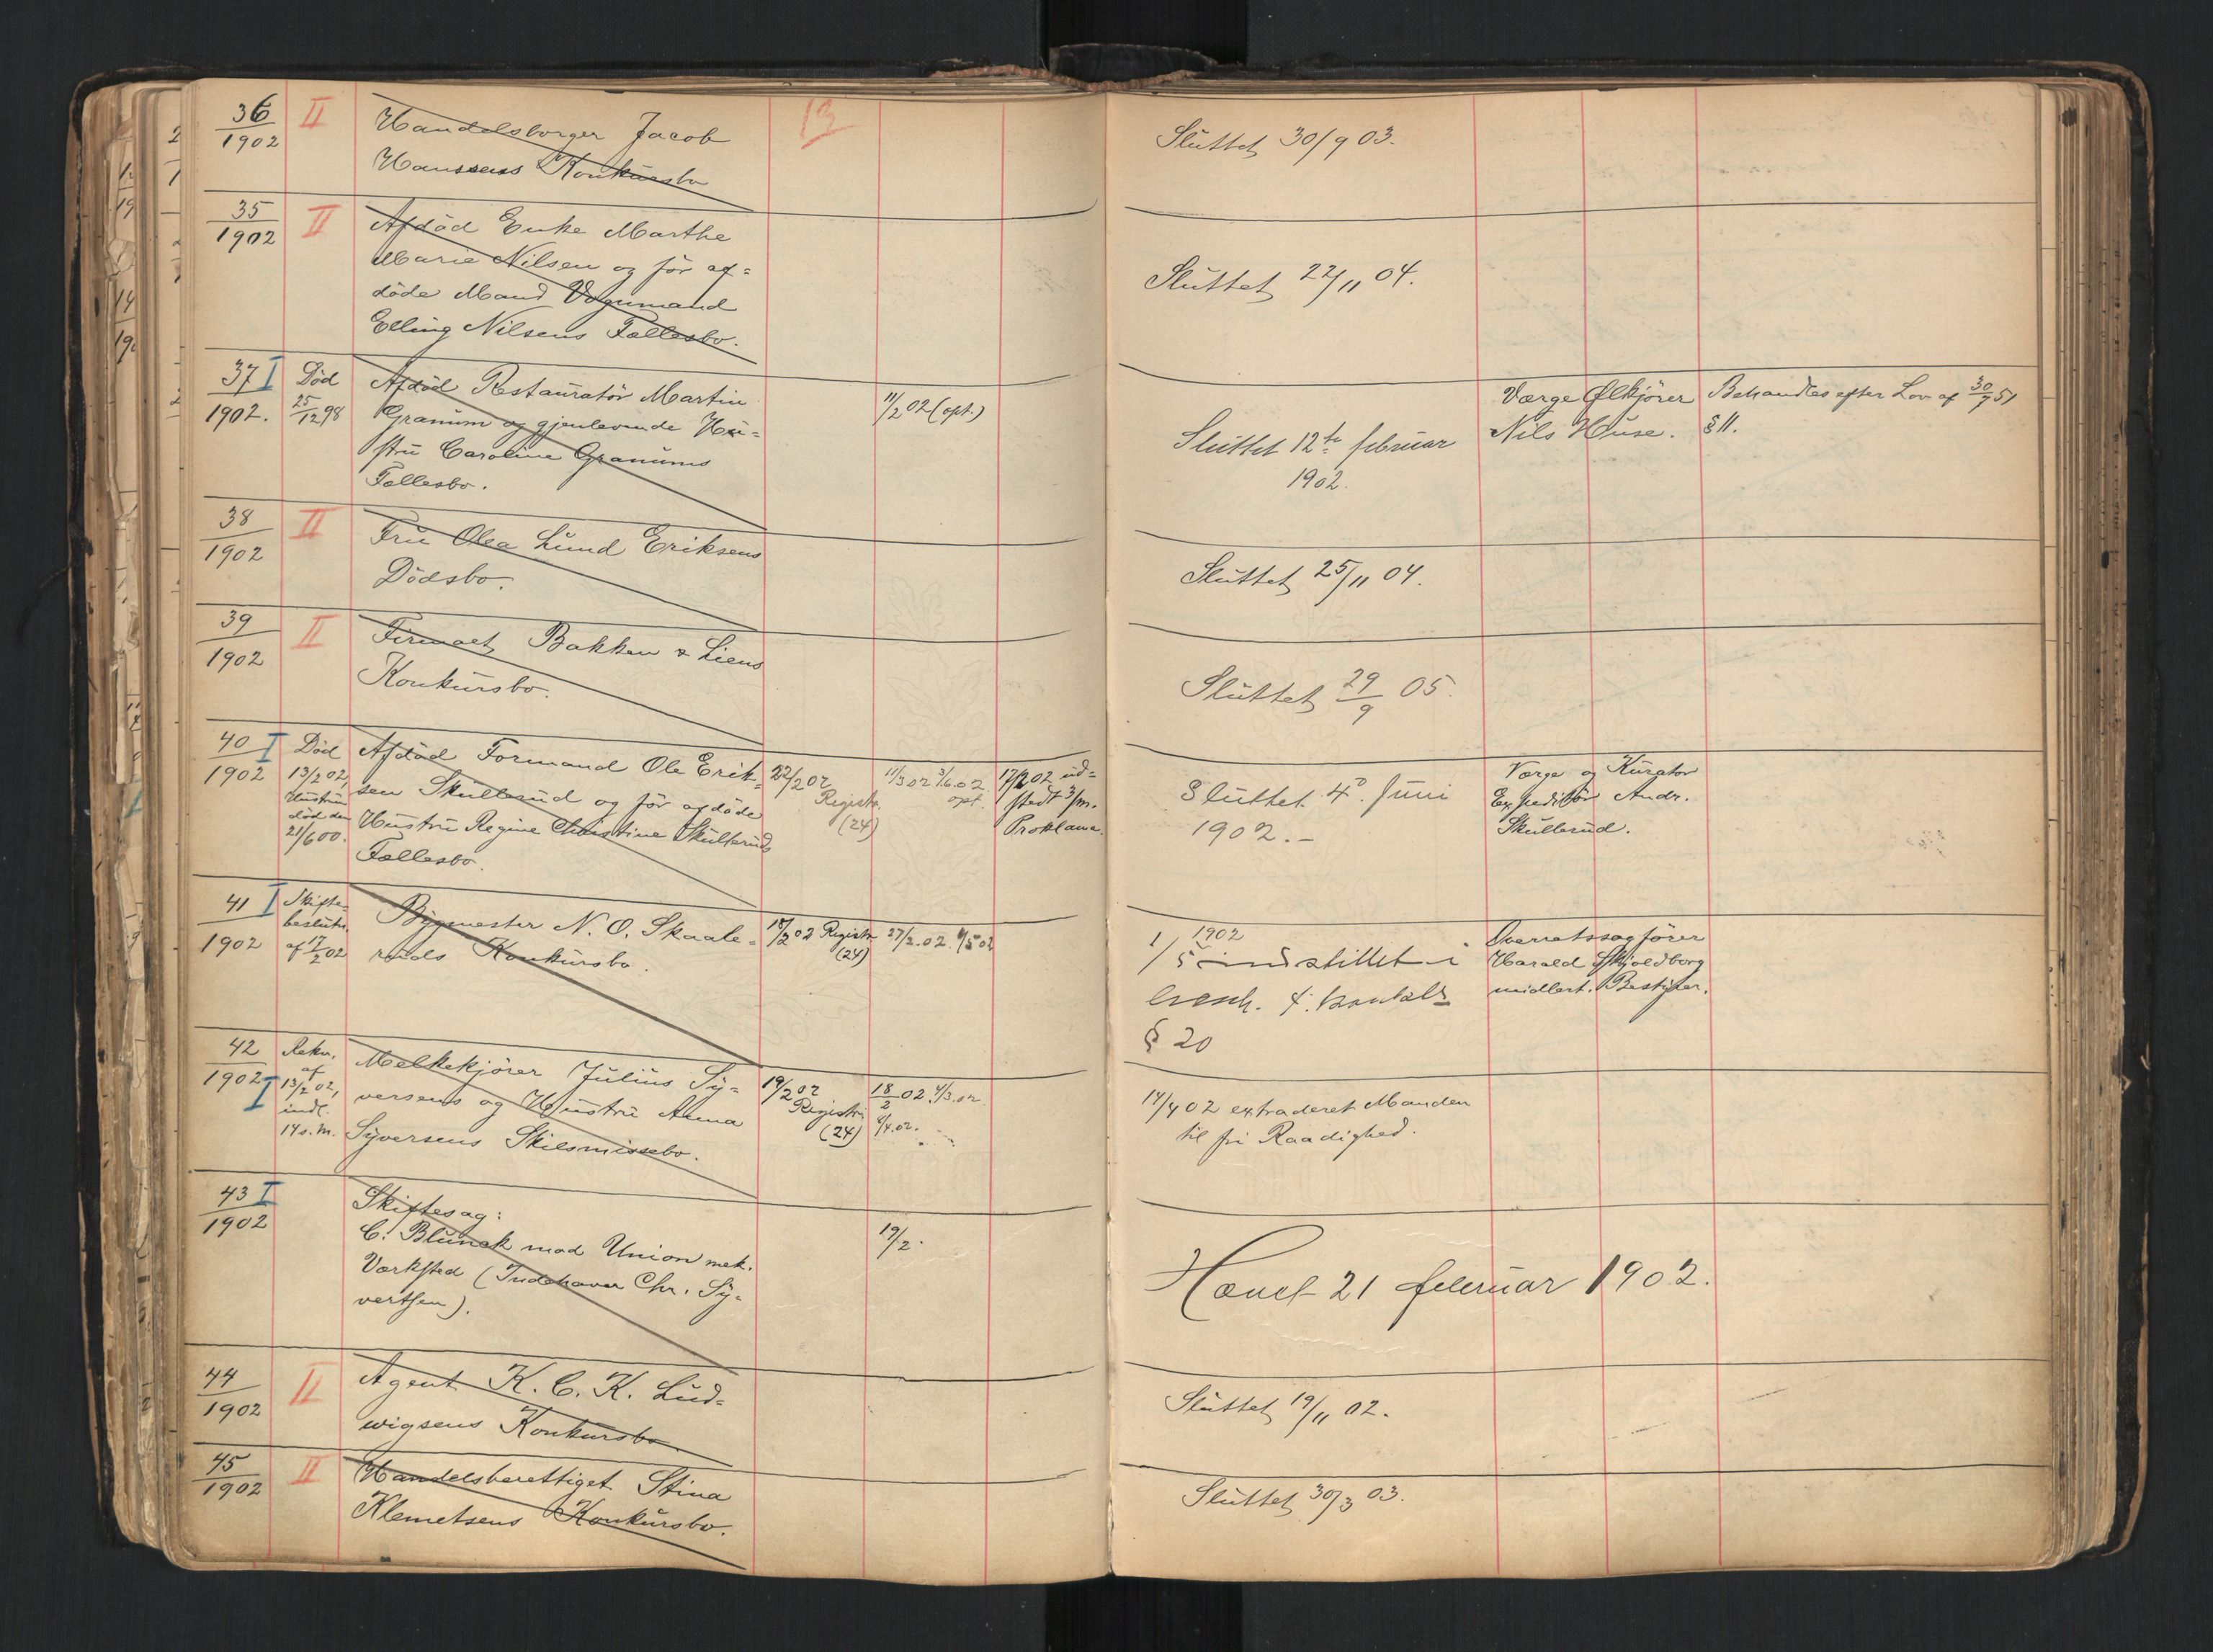 36 II Handelsborger Jacob 13
1902 Hanssens Konkursbo
Sluttet 30/9 03.
35 II Afdöd Enke Marthe
1902 Marie Nilsen og för af=
döde Mand Vognmand
Elling Nilsens Fællesbo.
Sluttet 22/11 04.
37 I Död Afdöd Restauratör Martin
1902. 25/12 98 Granum og gjenlevende Hu=
stru Caroline Granums
Fællesbo.
11/2 02 (opt.)
Sluttet 12te februar
1902.
Værge Ølkjörer
Nils Huse.
Behandles efter Lov af 30/7 51
§ 11.
38 II Fru Olea Lund Eriksens
1902 Dödsbo.
Sluttet 25/11 04.
39 II Firmaet Bakken & Liens
1902 Konkursbo.
Sluttet 29/9 05.
40 I Död Afdöd Formand Ole Erik=
1902 13/2 02, sen Skullerud og för afdöde
Hustru död den Hustru Regine Christine Skulleruds
21/6 00. Fællesbo.
22/2 02
Registr.
(24)
11/3 02 3/6.02
opt.
17/2 02 ud=
stedt 3/m.
Proklama.
Sluttet 4de Juni
1902.-
Værge og Kurator
Expeditör Andr.
Skullerud.
41 I Skifte- Bygmester N. O. Skaale=
beslutn.
1902 af 17/2 02 ruds Konkursbo.
18/2 02 Registr.
(24)
27/2.02. 1/5 02
1/5 1902 indstillet i
§ 20
Overretssagförer
Harald Skjoldborg
midlert. Bestyrer.
42 Rekv. Melkekjörer Julius Sy=
1902 I af 13/2 02, versens og Hustru Anna
indl.
14 s. m. Syversens Skilsmissebo.
19/2 02
Registr.
(24)
18/2 02. 4/3.02.
8/4.02.
14/4 02 extraderet Manden
til fri Raadighed.
43 I Skiftesag:
1902 C. Blunck mod Union mek.
Værksted (Indehaver Chr. Sy=
vertsen).
19/2.
Hævet 21 februar 1902.
44 II Agent K. C. K. Lud=
1902 wigsens Konkursbo.
Sluttet 19/11 02.
45 II Handelsberettiget Stina
1902 Klemetsens Konkursbo.
Sluttet 30/3 03.